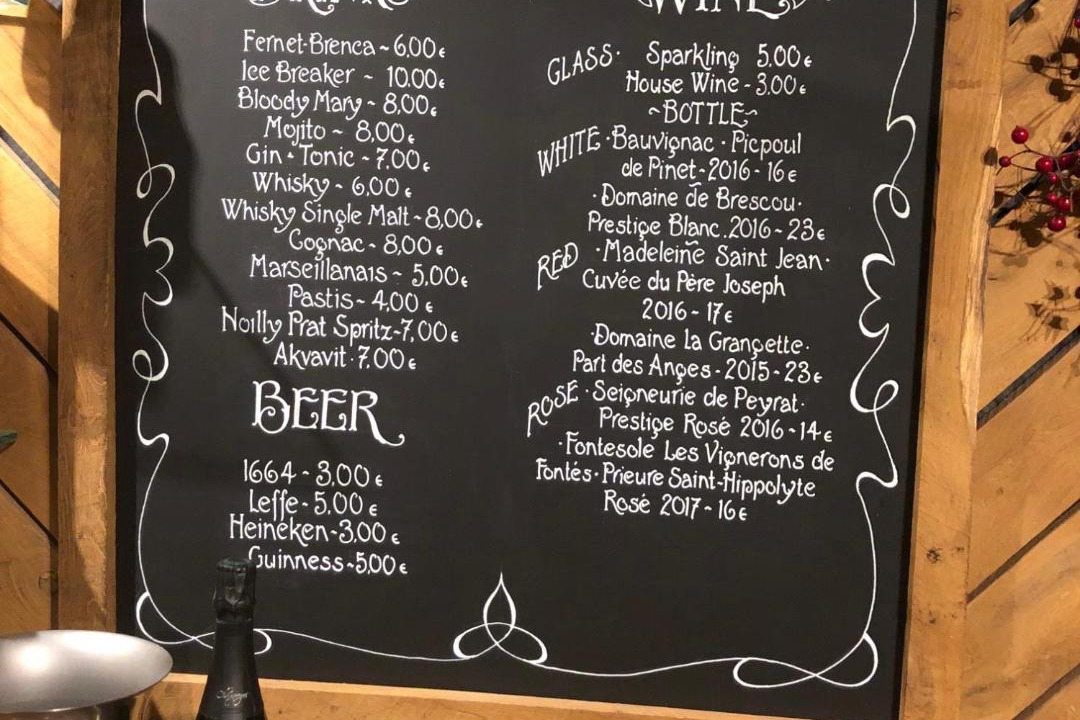 Fernet-Brenca ~ 6,00€
Ice Breaker ~ 10.00€
Bloody Mary ~ 8,00€
Mojito ~ 8,00€
Gin • Tonic ~ 7,00€
Whisky ~ 6,00€
Whisky Single Malt ~ 8,00€
Cognac ~ 8,00€
Marseillanais ~ 5,00€
Pastis ~ 4,00€
Noilly Prat Spritz-7,00€
Akvavit · 7,00€
BEER
1664 ~ 3,00€
Leffe - 5,00€
Heineken-3,00€
Guinness~5,00€
WINE
GLASS · Sparkling 5,00€
House Wine - 3,00€
~BOTTLE~
WHITE · Bauvignac · Picpoul
de Pinet - 2016 - 16€
· Domaine de Brescou ·
Prestige Blanc. 2016 ~ 23€
RED · Madeleine Saint Jean ·
Cuvée du Père Joseph
2016 - 17€
· Domaine la Grangette ·
Part des Anges - 2015 - 23€
ROSÉ · Seigneurie de Peyrat ·
Prestige Rosé 2016 ~ 14€
· Fontesole Les Vignerons de
Fontés · Prieure Saint-Hippolyte
Rosé 2017 ~ 16€